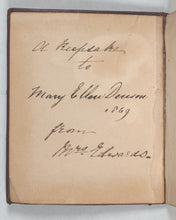 A Keepsake
to
Mary Ellen Denison
1869
from
Mrs Edwards.